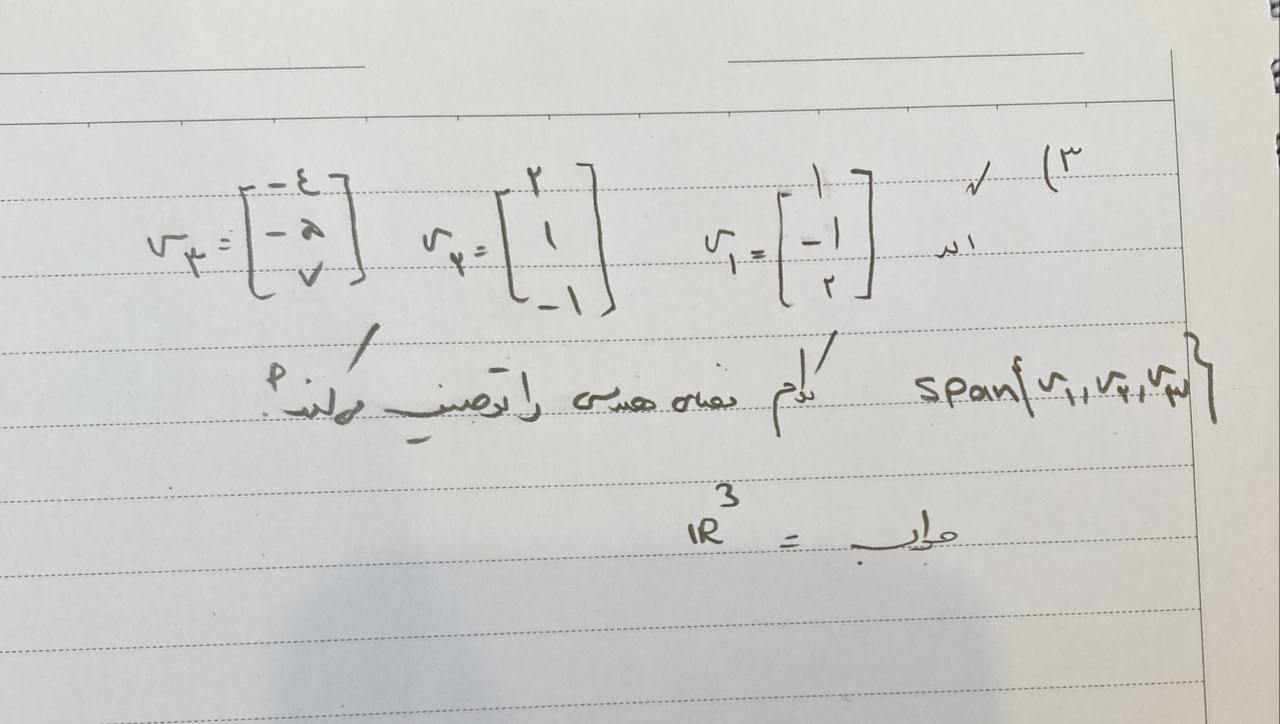 ۳) ✓
اگر v₁ = [۱ -۱ ۲] v₂ = [۲ ۱ -۱] v₃ = [-٤ -۵ ۷]
span{v₁, v₂, v₃} کدام فضای هندسی را توصیف می‌کند؟
جواب = ℝ³